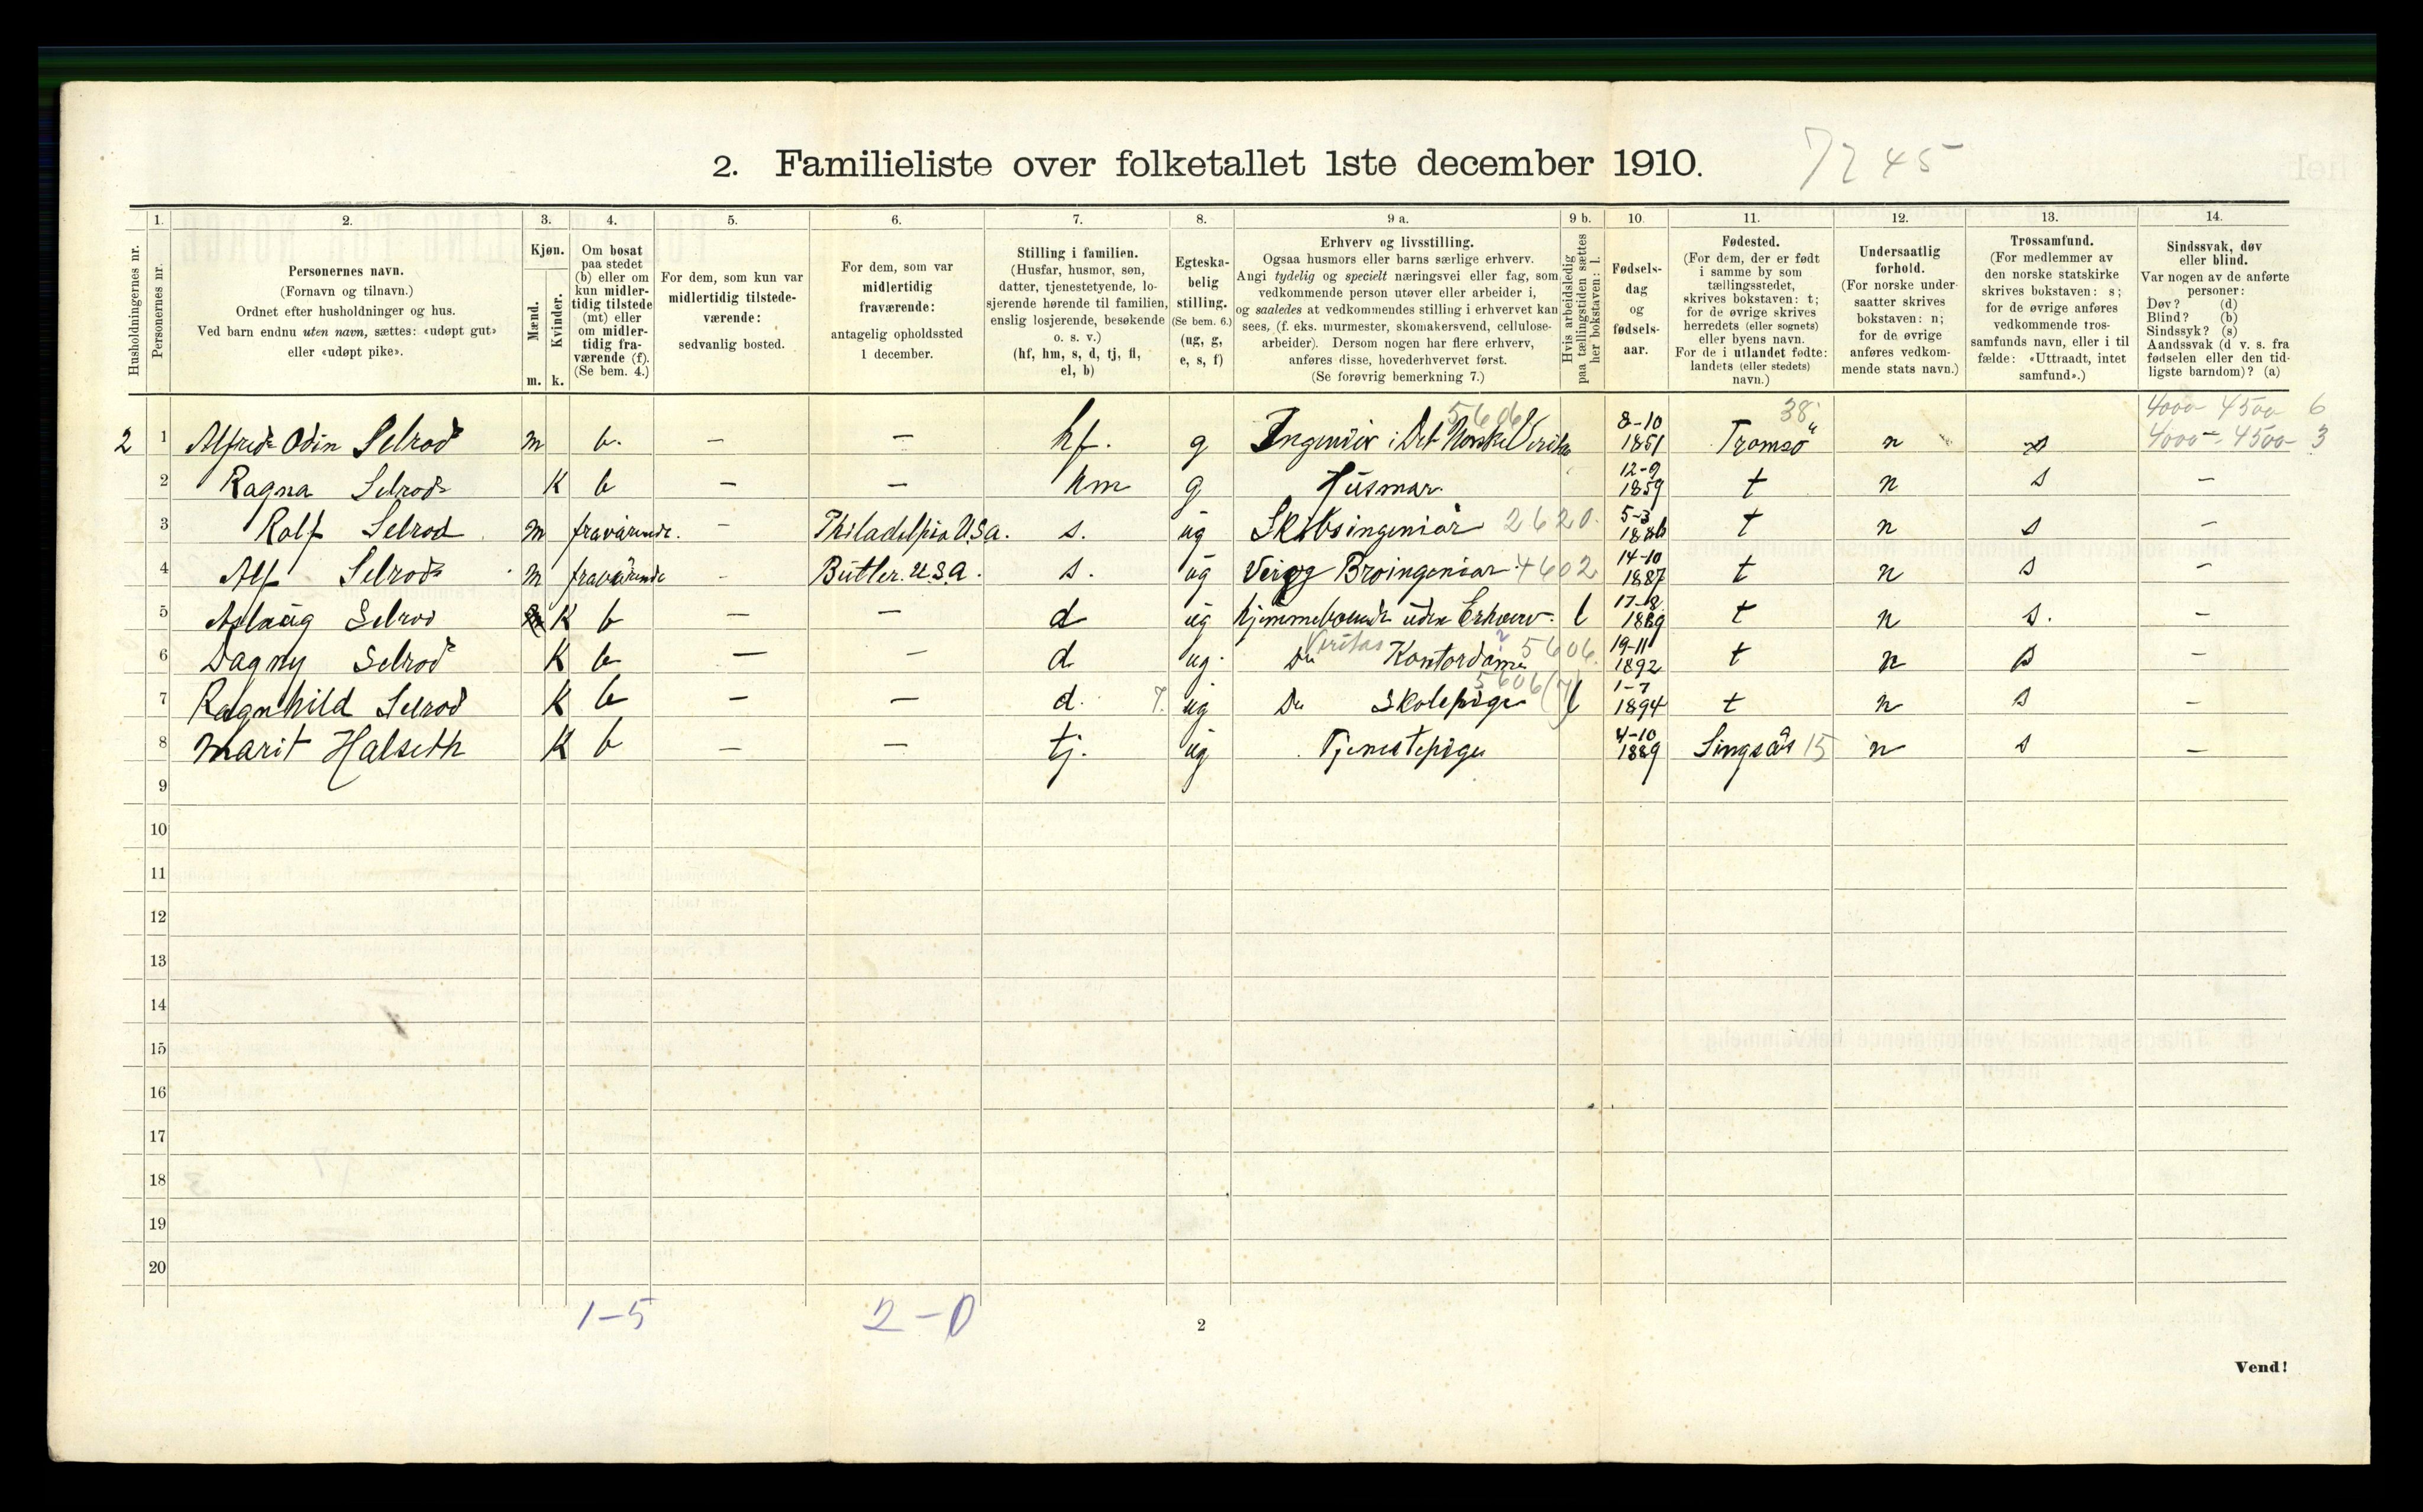 2. Familieliste over folketallet 1ste december 1910.
7245
1. 2. 3. 4. 5. 6. 7. 8. 9 a. 9 b. 10. 11. 12. 13. 14.
Husholdningernes nr.
Personernes nr.
Personernes navn.
(Fornavn og tilnavn.)
Ordnet efter husholdninger og hus.
Ved barn endnu uten navn, sættes: «udøpt gut»
eller «udøpt pike».
Kjøn.
Mænd.
Kvinder.
m. k.
Om bosat
paa stedet
(b) eller om
kun midler-
tidig tilstede
(mt) eller
om midler-
tidig fra-
værende (f).
(Se bem. 4.)
For dem, som kun var
midlertidig tilstede-
værende:
sedvanlig bosted.
For dem, som var
midlertidig
fraværende:
antagelig opholdssted
1 december.
Stilling i familien.
(Husfar, husmor, søn,
datter, tjenestetyende, lo-
sjerende hørende til familien,
enslig losjerende, besøkende
o. s. v.)
(hf, hm, s, d, tj, fl,
el, b)
Egteska-
belig
stilling.
(Se bem. 6.)
(ug, g,
e, s, f)
Erhverv og livsstilling.
Ogsaa husmors eller barns særlige erhverv.
Angi tydelig og specielt næringsvei eller fag, som
vedkommende person utøver eller arbeider i,
og saaledes at vedkommendes stilling i erhvervet kan
sees, (f. eks. murmester, skomakersvend, cellulose-
arbeider). Dersom nogen har flere erhverv,
anføres disse, hovederhvervet først.
(Se forøvrig bemerkning 7.)
Hvis arbeidsledig
paa tællingstiden sættes
her bokstaven: l.
Fødsels-
dag
og
fødsels-
aar.
Fødested.
(For dem, der er født
i samme by som
tællingsstedet,
skrives bokstaven: t;
for de øvrige skrives
herredets (eller sognets)
eller byens navn.
For de i utlandet fødte:
landets (eller stedets)
navn.)
Undersaatlig
forhold.
(For norske under-
saatter skrives
bokstaven: n;
for de øvrige
anføres vedkom-
mende stats navn.)
Trossamfund.
(For medlemmer av
den norske statskirke
skrives bokstaven: s;
for de øvrige anføres
vedkommende tros-
samfunds navn, eller i til
fælde: «Uttraadt, intet
samfund».)
Sindssvak, døv
eller blind.
Var nogen av de anførte
personer:
Døv? (d)
Blind? (b)
Sindssyk? (s)
Aandssvak (d v. s. fra
fødselen eller den tid-
ligste barndom)? (a)
5606 38 4000-4500 6
2 1 Alfred Odin Selrod m b. — — hf. g Ingeniör i Det Norske Veritas 8-10 1851 Tromsö n s 4000-4500 3
2 Ragna Selrod K b — — hm g Husmor. 12-9 1859 t n s —
3 Rolf Selrod m fraværende. - Philadelpia U.S.A. s. ug Skibsingeniör 2620. 5-3 1886 t n s —
4 Alf Selrod m fraværende - Butler. U.S.A. s. ug Veiog Broingeniör 4602 14-10 1887 t n s —
5 Aslaug Selrod K b — — d ug hjemmeboende uden Erhverv. l 17-8 1889 t n s. —
Veritas 5606
6 Dagny Selrod K b — — d ug. Do Kontordame 19-11 1892 t n s —
5606(7)
7 Ragnhild Selrod K b — — d. 7. ug Do Skolepige l 1-7 1894 t n s —
8 Marit Halseth K b — — tj. ug Tjenestepige 4-10 1889 Singsås 15 n s —
9
10
11
12
13
14
15
16
17
18
19
20
1-5 2-0
2
Vend!